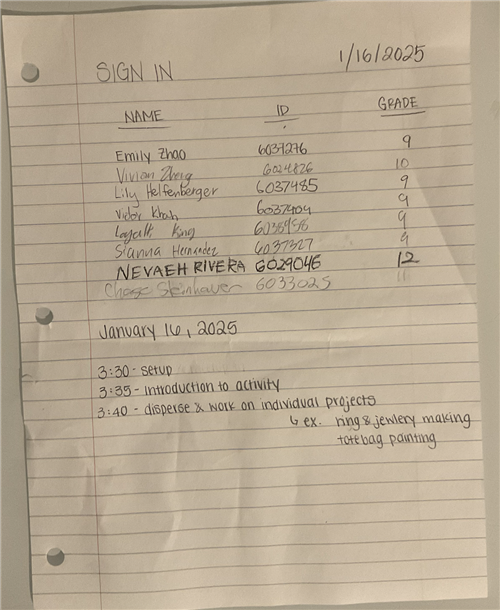 SIGN IN 1/16/2025
NAME ID GRADE
Emily Zhao 6037276 9
Vivian Zheng 6024826 10
Lily Helfenberger 6037485 9
Victor Khanh 6037404 9
King 9
Sianna Hernandez 6037327 9
NEVAEH RIVERA 6029046 12
Chase Steinhauer 6033025 11
January 16, 2025
3:30 - setup
3:35 - introduction to activity
3:40 - disperse & work on individual projects
↳ ex. ring & jewlery making
totebag painting